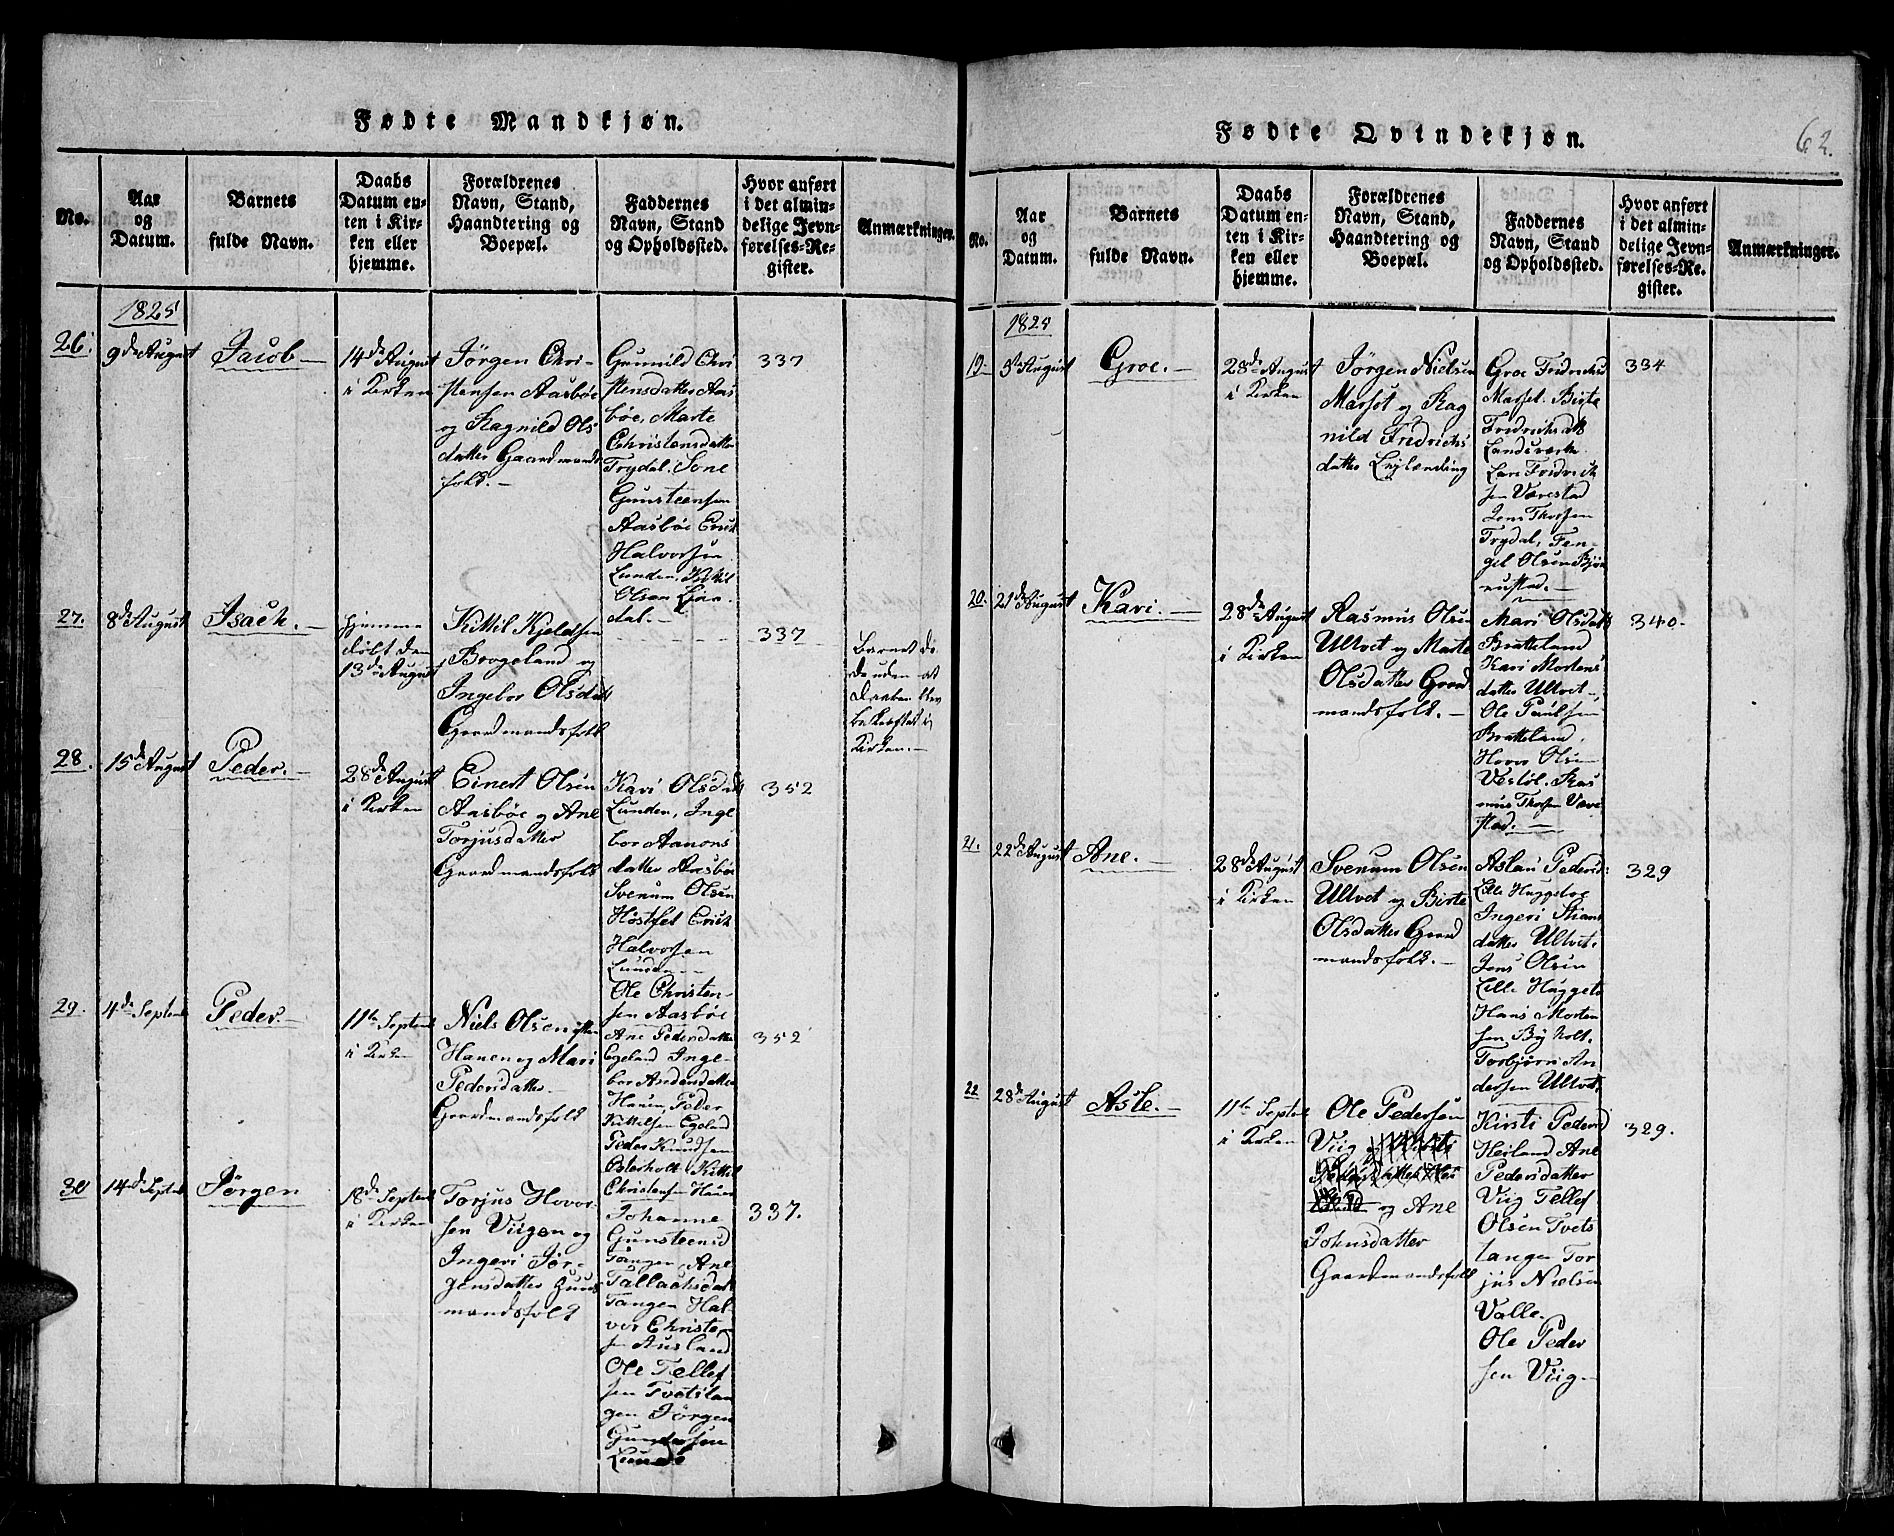 Fødte Mandkjøn.
No.
Aar
og
Datum.
Barnets
fulde Navn.
Daabs
Datum en-
ten i Kir-
ken eller
hjemme.
Forældrenes
Navn, Stand,
Haandtering og
Boepæl.
Faddernes
Navn, Stand
og Opholdssted.
Hvor anført
i det almin-
delige Jevn-
førelses-Re-
gister.
Anmærkninger.
1825
26.
9de August
Jacob
14de August
i Kirken
Jørgen Chri-
stensen Aasbøe
og Ragnild Ols
datter Gaardmands
folk.
Gunnild Chri
stensdatter Aas
bøe, Marte
Christensdatter
Trydal. Sone
Gunsteensen
Aasbøe Erich
Halvorsen
Lunden, Kittil
Olsen
dal.
337
27.
8de August
Isach.
Hjemme
døbt den
13de August
Kittil Kjeldsen
Borgeland og
Ingebor Olsdatt
Gaardmandsfolk
337
Barnet dø
de uden at
Daaben blev
bekræftet i
Kirken.
28.
15de August
Peder.
28de August
i Kirken
Einert Olsen
Aasbøe og Ane
Torjusdatter
Gaardmandsfolk
Kari Olsdatt
Lunden, Inge
bor Aanons
datter Aasbøe
Svenum Olsen
Høstfet Erich
Halvorsen
Lunden
Ole Christen-
sen Aasbøe
352
29.
4de Septemb
Peder.
11te Septemb
i Kirken
Niels Olsen
Hauen og Mari
Pedersdatter
Gaardmandsfolk
Ane Pedersdatter
Egeland Inge-
bor Andersdatter
Hauen, Peder
Kittilsen Egeland
Peder Knudsen
Østerholt Kittel
Christensen Hauen
352
30
14de Septemb
Jørgen
18de Septemb
i Kirken
Torjus Hovor
sen Viigen og
Ingeri Jør-
gensdatter Huus
mandsfolk
Johanne
Gunsteensd
Tangen, Ane
Tallachsdatt
Tangen Hal-
vor Christen
sen Ausland
Ole Tellef
sen Tvetslan
gen Jørgen
Gundersen
Lunde
337.
Fødte Qvindekjøn.
62.
No.
Aar
og
Datum.
Barnets
fulde Navn.
Daabs
Datum en-
ten i Kir-
ken eller
hjemme.
Forældrenes
Navn, Stand,
Haandtering og
Boepæl.
Faddernes
Navn, Stand
og Opholdssted.
Hvor anført
i det almin-
delige Jevn-
førelses-Re-
gister.
Anmærkninger.
1825
19.
5te August
Groe.
28de August
i Kirken
Jørgen Nielsen
Masset og Rag
nild Fredrichs
datter Leylænding
Groe Fredrichsd
Masset. Birte
Fredrichsdatt
Landsværk
Lars Fredrich
sen Værestad
Jens Thorsen
Trydal, Ten-
gel Olsen Bjør
nustad.
334
20.
21de August
Kari.
28de August
i Kirken
Rasmus Olsen
Ultvet og Marte
Olsdatter Gaard
mandsfolk.
Mari Olsdatt
Bratteland
Kari Mortens
datter Ultvet
Ole Paulsen
Bratteland,
Hovor Olsen
Vestøl. Ras
mus Thorsen Være
stad.
340.
21.
22de August
Ane.
28de August
i Kirken
Svenum Olsen
Ultvet og Birte
Olsdatter Gaard
mandsfolk.
Aslau Pedersd:
Lille Huggeboe
Ingeri Stians
datter Ultvet.
Jens Olsen
Lille Huggeboe
Hans Morten
sen Byholt.
Torbjørn An
dersen Ultvet.
329
22
28de August
Asle.
11te Septemb
i Kirken
Ole Pedersen
Viig og Kirsti
Pedersdatter
og Ane
Johnsdatter
Gaardmandsfolk
Kirsti Pedersd
Heiland Ane
Pedersdatter
Viig Tellef
Olsen Tvets
langen Tor
jus Nielsen
Valle.
Ole Peder
sen Viig
329.